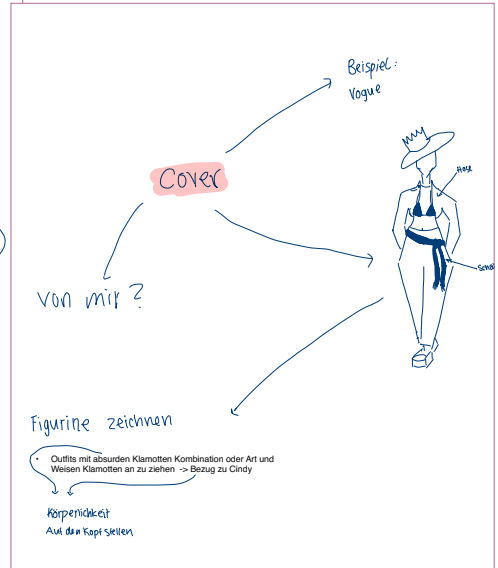 Beispiel:
Vogue
Cover
Hose
Schal
von mir?
Figurine zeichnen
• Outfits mit absurden Klamotten Kombination oder Art und
Weisen Klamotten an zu ziehen -> Bezug zu Cindy
Körperlichkeit
Auf den Kopf stellen